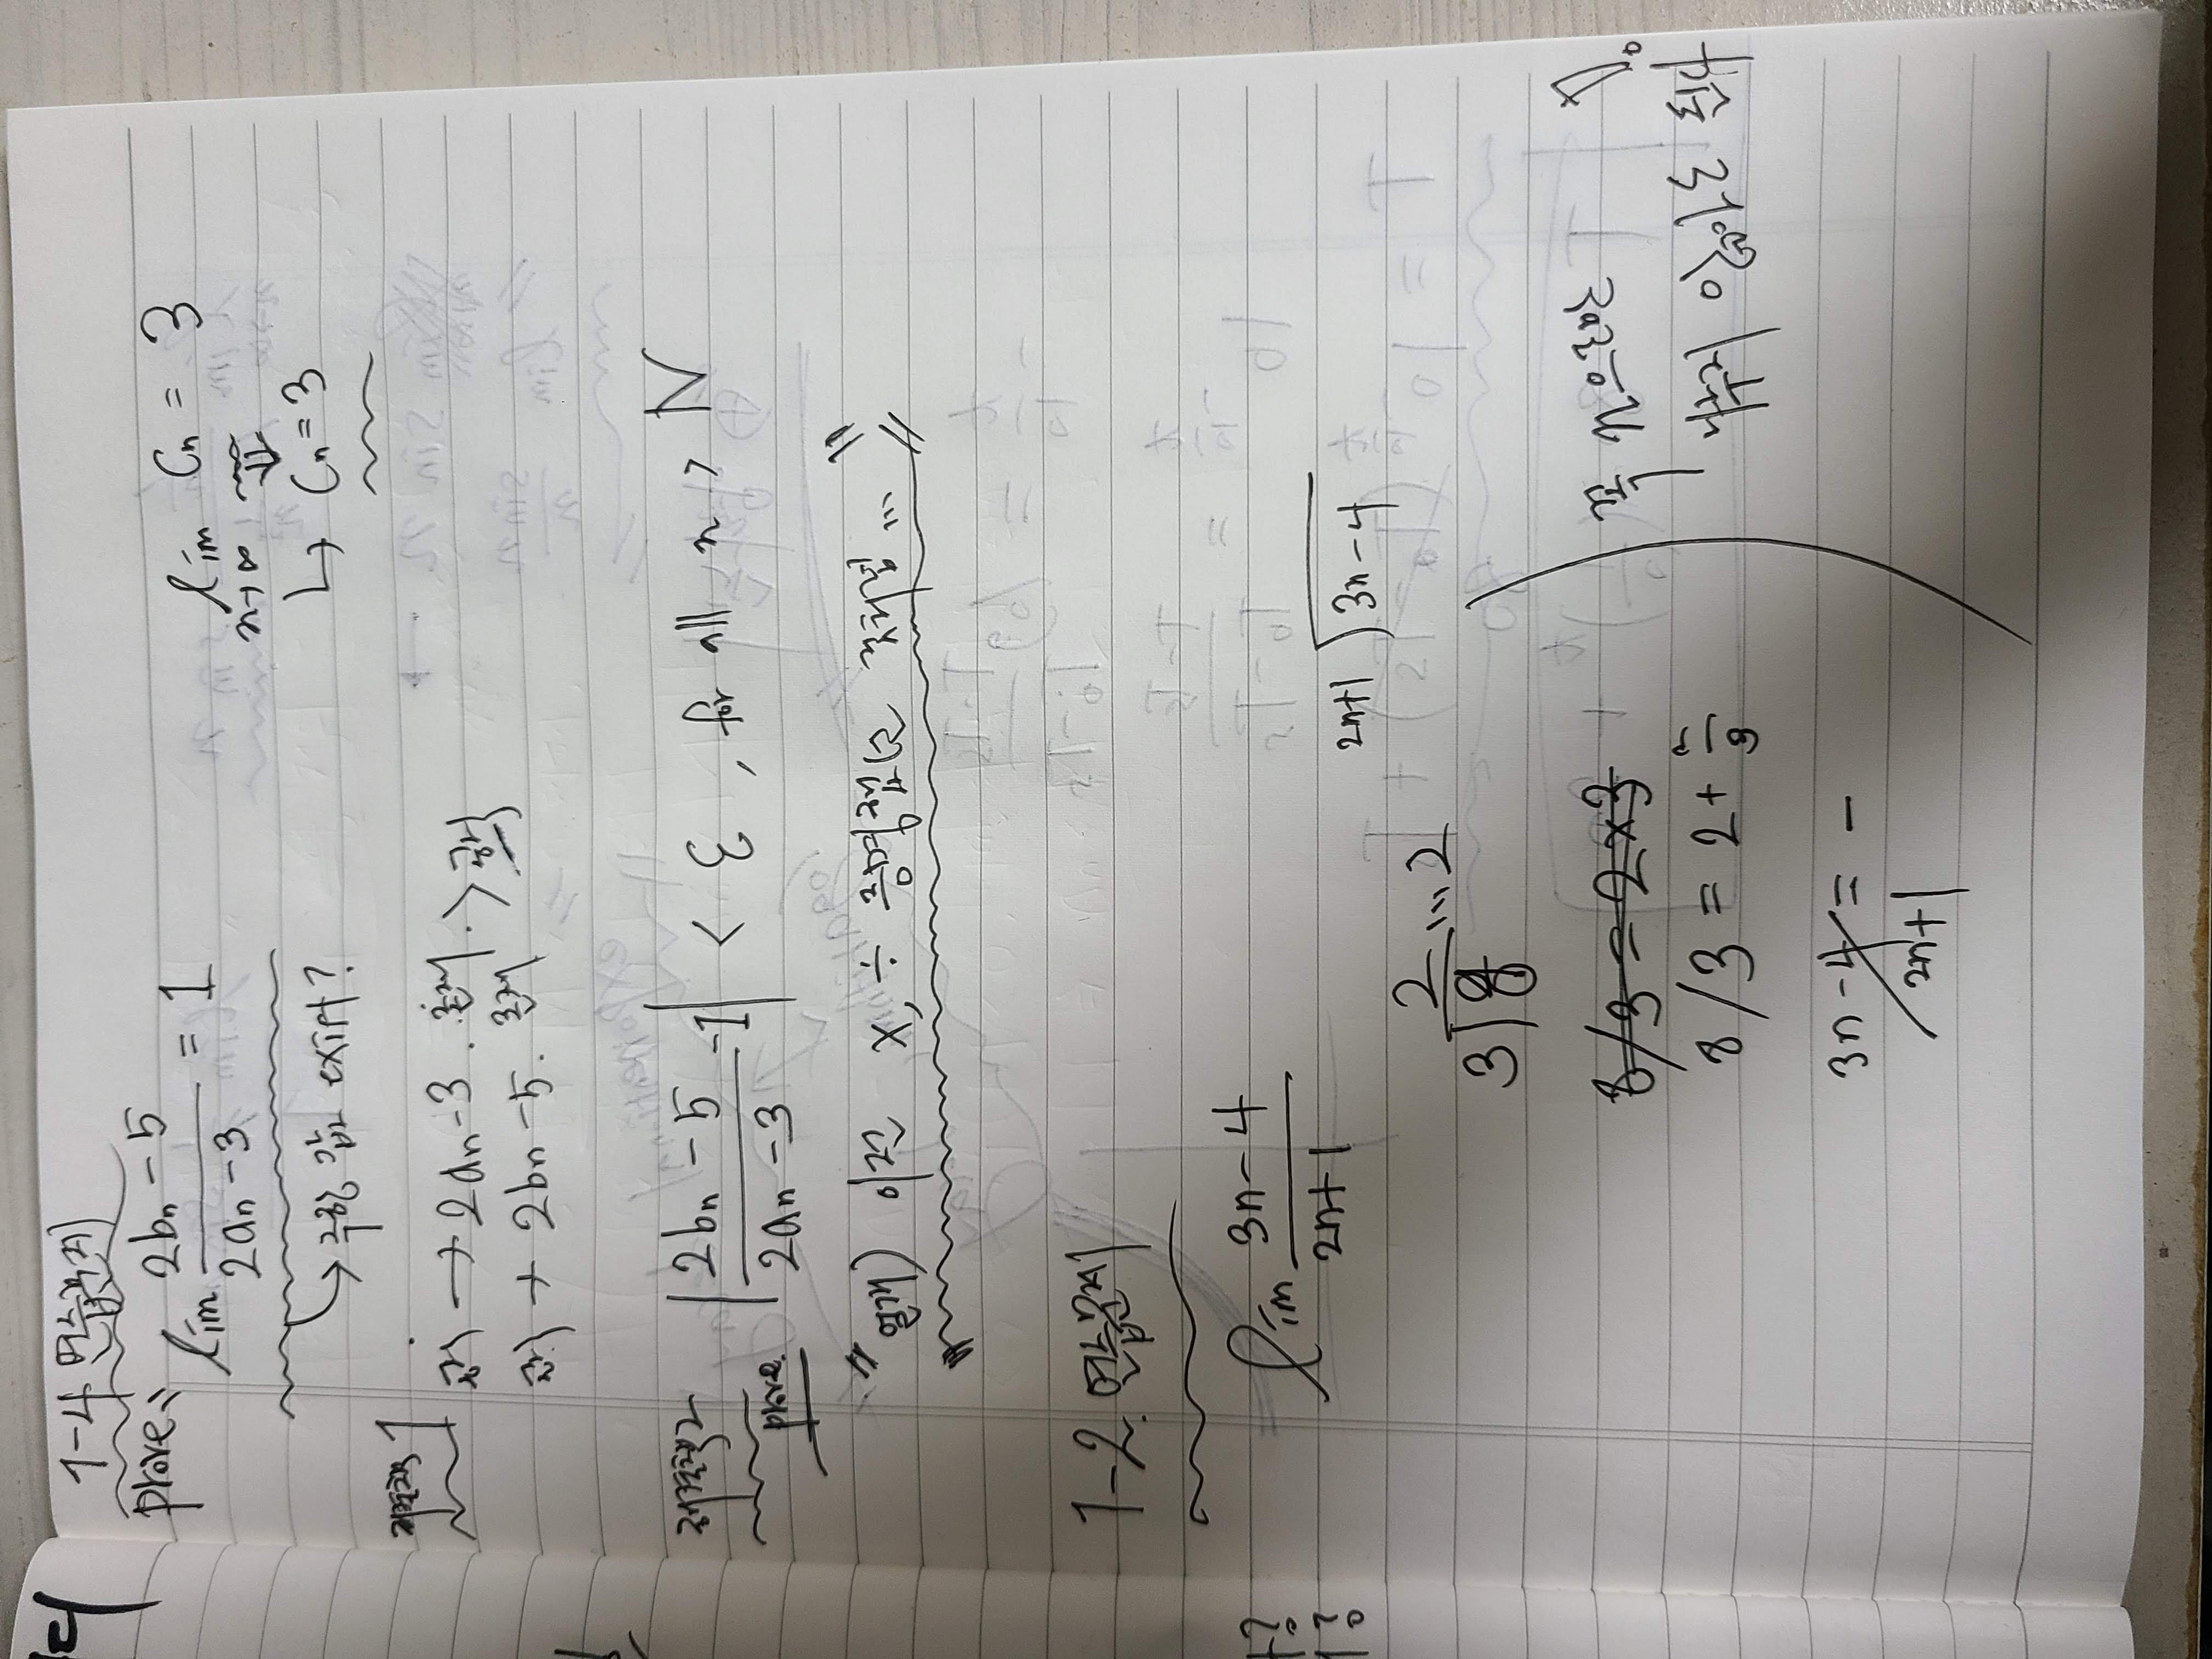 1-4 연습문제
prove
lim (2bn - 5)/(2an - 3) = 1
→ 극한 값 exist?
lim n→∞ Cn = 3
⇓
↳ Cn = 3
해결책 1
공식 → 2an - 3. 존재. > 공식
공식 → 2bn - 5. 존재
해결책 2
prove
|(2bn - 5)/(2an - 3) - 1| < ε, for all n > N
" 열개) 이전 x, ÷ 증명했던 것처럼 ... "
1-2. 연습문제
lim (3n - 4)/(2n + 1)
2n+1 ) 3n - 4
2 ... 2
3 | 8
8/3 = 2 × 3
8/3 = 2 + 2/3
3n - 4 / 2n + 1 = -
꼭 n으로만
나누지 않아도 된다